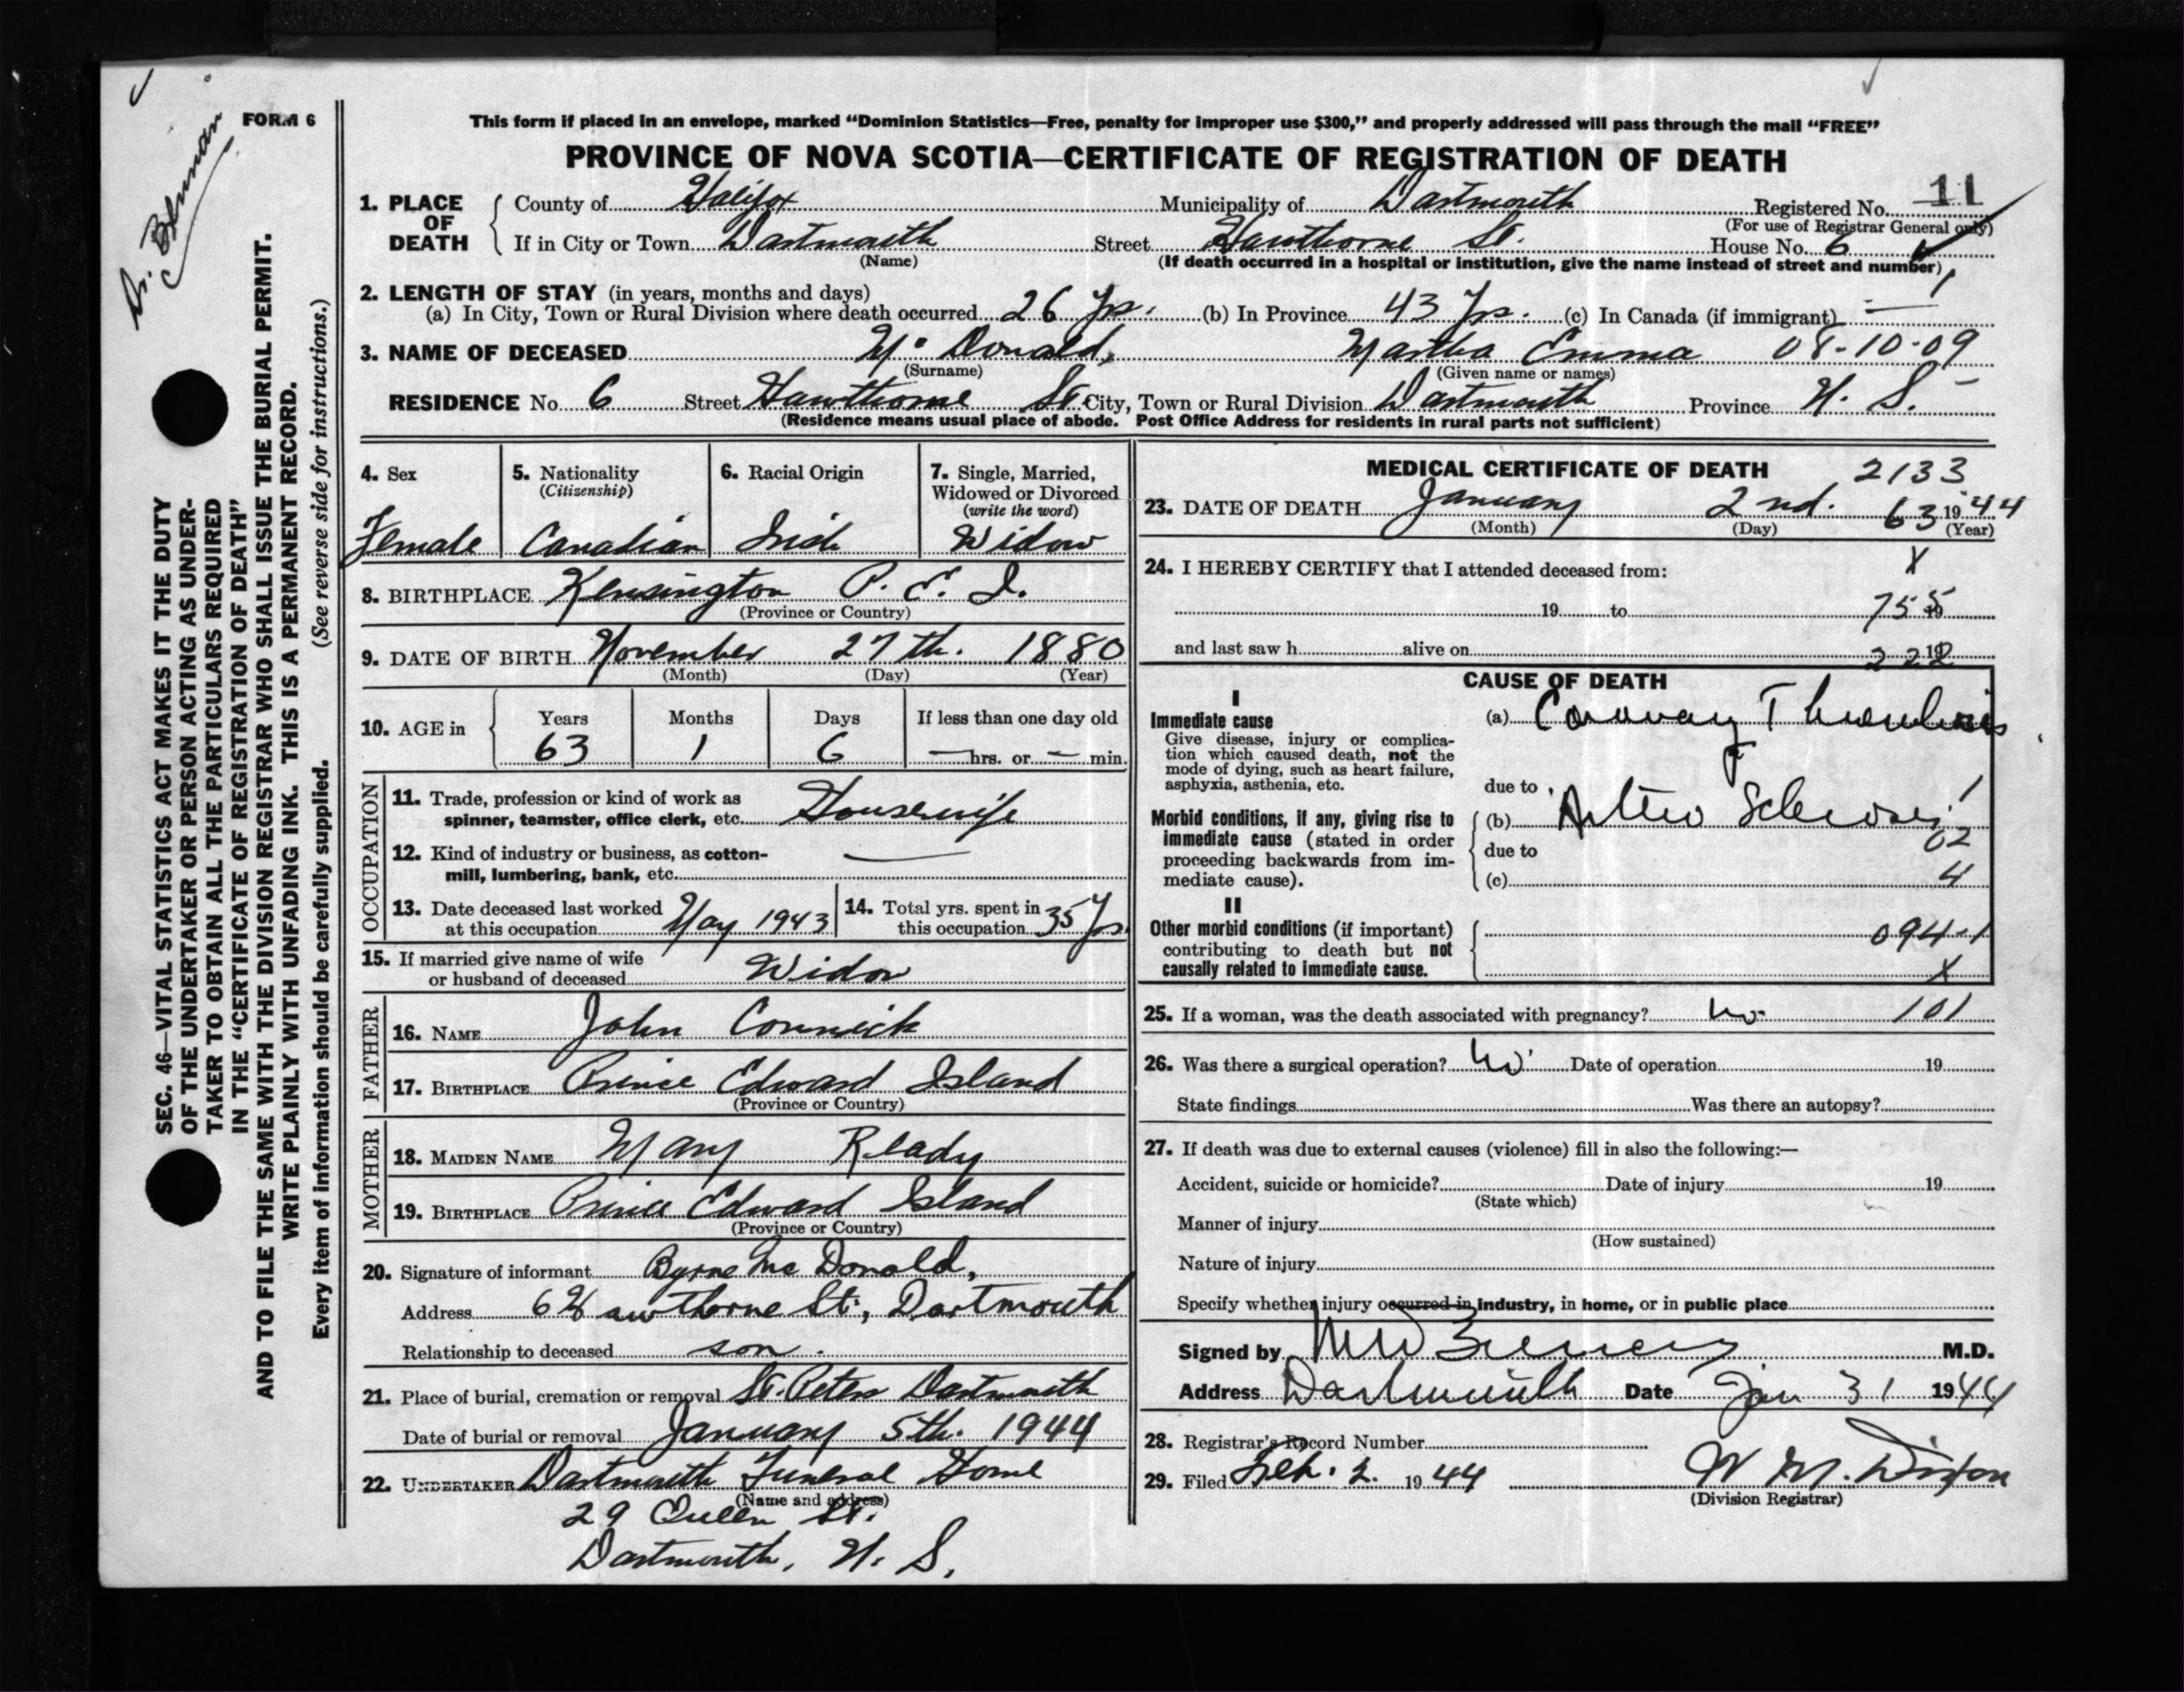 FORM 6
This form if placed in an envelope, marked “Dominion Statistics—Free, penalty for improper use $300,” and properly addressed will pass through the mail “FREE”
PROVINCE OF NOVA SCOTIA—CERTIFICATE OF REGISTRATION OF DEATH
1. PLACE OF DEATH County of Halifax Municipality of Dartmouth Registered No. 11
(For use of Registrar General only)
If in City or Town Dartmouth Street Hawthorne St. House No. 6
(Name) (If death occurred in a hospital or institution, give the name instead of street and number)
2. LENGTH OF STAY (in years, months and days)
(a) In City, Town or Rural Division where death occurred 26 Yrs. (b) In Province 43 Yrs. (c) In Canada (if immigrant) —
3. NAME OF DECEASED Mc Donald, Martha Emma 08-10-09
(Surname) (Given name or names)
RESIDENCE No. 6 Street Hawthorne St. City, Town or Rural Division Dartmouth Province N. S.
(Residence means usual place of abode. Post Office Address for residents in rural parts not sufficient)
4. Sex 5. Nationality 6. Racial Origin 7. Single, Married,
(Citizenship) Widowed or Divorced
(write the word)
Female Canadian Irish Widow
8. BIRTHPLACE Kensington P. E. I.
(Province or Country)
9. DATE OF BIRTH November 27th. 1880
(Month) (Day) (Year)
10. AGE in Years Months Days If less than one day old
63 1 6 — hrs. or — min.
OCCUPATION
11. Trade, profession or kind of work as
spinner, teamster, office clerk, etc. Housewife
12. Kind of industry or business, as cotton-
mill, lumbering, bank, etc. —
13. Date deceased last worked
at this occupation May 1943
14. Total yrs. spent in
this occupation 35 Yrs.
15. If married give name of wife
or husband of deceased Widow
FATHER
16. NAME John Connick
17. BIRTHPLACE Prince Edward Island
(Province or Country)
MOTHER
18. MAIDEN NAME Mary Ready
19. BIRTHPLACE Prince Edward Island
(Province or Country)
20. Signature of informant Byrne Mc Donald,
Address 6 Hawthorne St., Dartmouth
Relationship to deceased son.
21. Place of burial, cremation or removal St. Peters Dartmouth
Date of burial or removal January 5th. 1944
22. UNDERTAKER Dartmouth Funeral Home
(Name and address)
29 Queen St.
Dartmouth, N. S.
MEDICAL CERTIFICATE OF DEATH 2133
23. DATE OF DEATH January 2nd. 63 1944
(Month) (Day) (Year)
24. I HEREBY CERTIFY that I attended deceased from: X
19 to 19 755
and last saw h alive on 19 222
CAUSE OF DEATH
I
Immediate cause (a) Coronary Thrombosis
Give disease, injury or complica-
tion which caused death, not the
mode of dying, such as heart failure,
asphyxia, asthenia, etc.
due to
Morbid conditions, if any, giving rise to (b) Arterio Sclerosis
immediate cause (stated in order 02
proceeding backwards from im- due to
mediate cause). (c) 4
II
Other morbid conditions (if important)
contributing to death but not 094-1
causally related to immediate cause. X
25. If a woman, was the death associated with pregnancy? No 101
26. Was there a surgical operation? No Date of operation 19
State findings Was there an autopsy?
27. If death was due to external causes (violence) fill in also the following:—
Accident, suicide or homicide? Date of injury 19
(State which)
Manner of injury
(How sustained)
Nature of injury
Specify whether injury occurred in industry, in home, or in public place
Signed by M.D.
Address Dartmouth Date Jan 31 1944
28. Registrar's Record Number
29. Filed Feb. 2. 1944 W M. Dixon
(Division Registrar)
SEC. 46—VITAL STATISTICS ACT MAKES IT THE DUTY
OF THE UNDERTAKER OR PERSON ACTING AS UNDER-
TAKER TO OBTAIN ALL THE PARTICULARS REQUIRED
IN THE “CERTIFICATE OF REGISTRATION OF DEATH”
AND TO FILE THE SAME WITH THE DIVISION REGISTRAR WHO SHALL ISSUE THE BURIAL PERMIT.
WRITE PLAINLY WITH UNFADING INK. THIS IS A PERMANENT RECORD.
Every item of information should be carefully supplied. (See reverse side for instructions.)